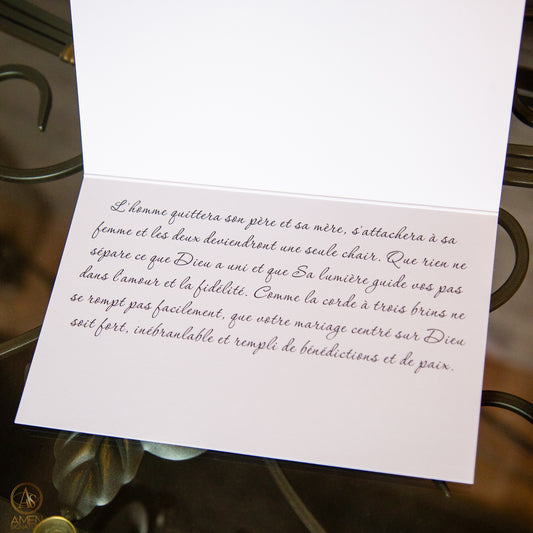 L'homme quittera son père et sa mère, s'attachera à sa
femme et les deux deviendront une seule chair. Que rien ne
sépare ce que Dieu a uni et que Sa lumière guide vos pas
dans l'amour et la fidélité. Comme la corde à trois brins ne
se rompt pas facilement, que votre mariage centré sur Dieu
soit fort, inébranlable et rempli de bénédictions et de paix.
AMEN